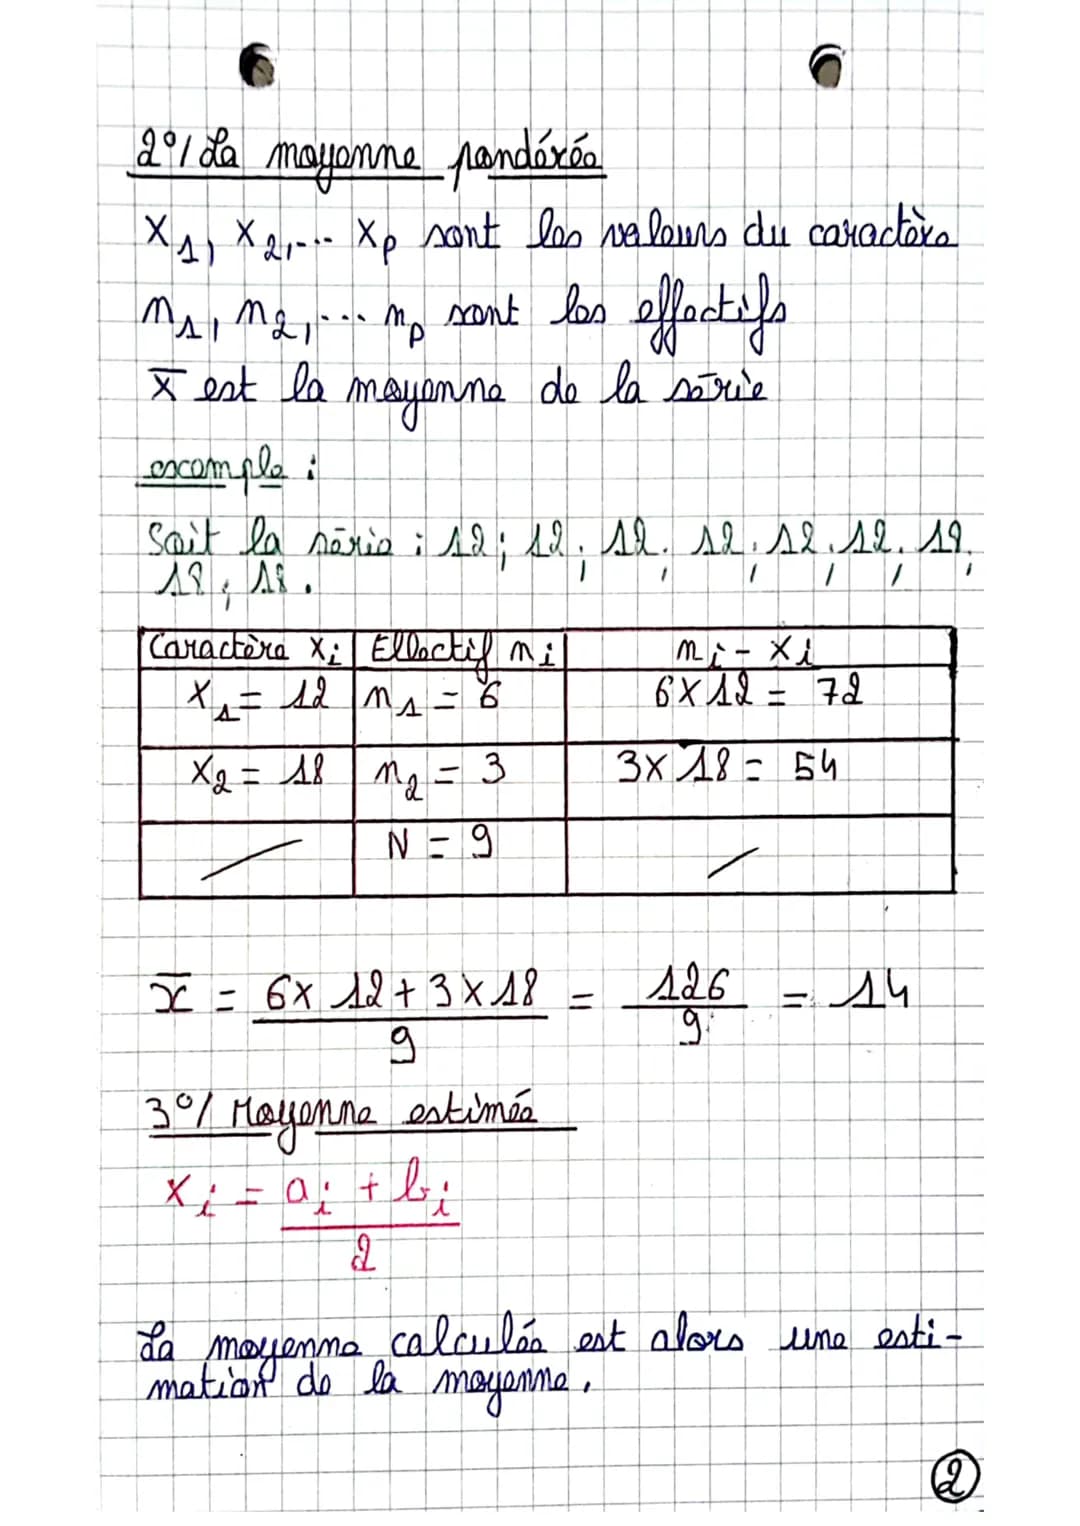 2°/ La moyenne pondérée
x1, x2,... xp sont les valeurs du caractère
n1, n2,... np sont les effectifs
x̄ est la moyenne de la série
exemple :
Soit la série : 12; 12, 12, 12, 12, 12, 18,
18, 18.
Caractère xi Effectif ni ni - xi
x1 = 12 n1 = 6 6 x 12 = 72
x2 = 18 n2 = 3 3 x 18 = 54
N = 9
x̄ = 6 x 12 + 3 x 18 / 9 = 126 / 9 = 14
3°/ Moyenne estimée
xi = ai + bi / 2
La moyenne calculée est alors une esti-
mation de la moyenne.
2